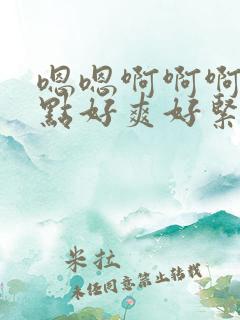 嗯嗯啊啊啊
點好爽好緊
米拉
未经同意禁止转载